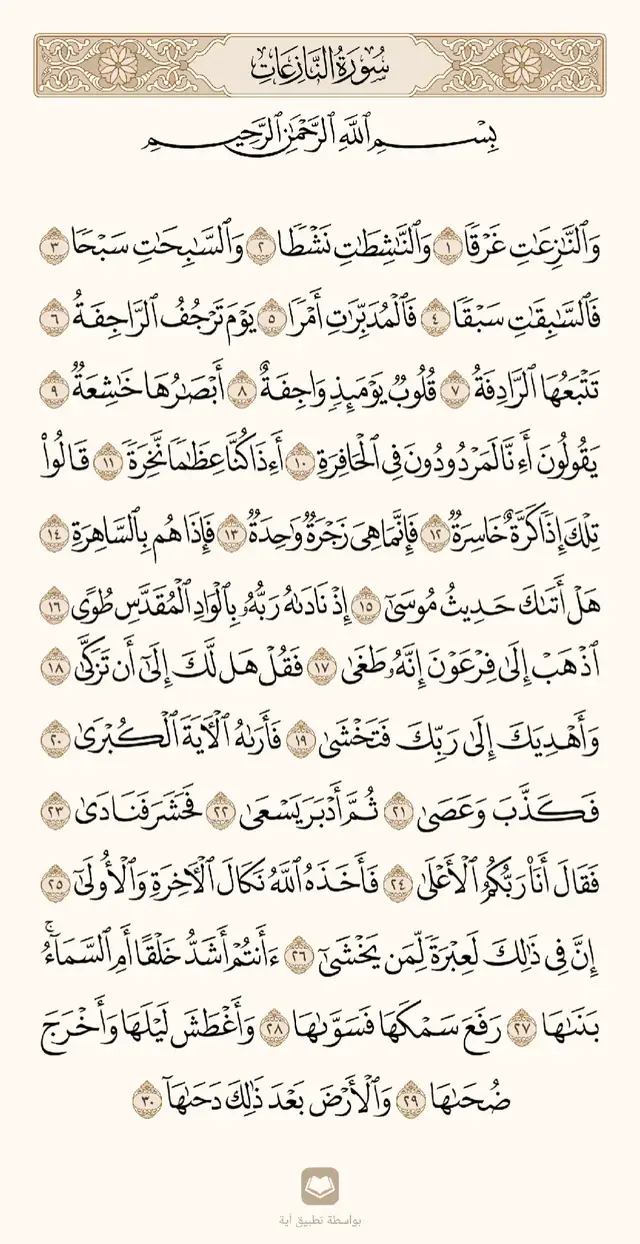 سُورَةُ النَّازِعَاتِ
بِسْمِ ٱللَّهِ ٱلرَّحْمَٰنِ ٱلرَّحِيمِ
وَٱلنَّٰزِعَٰتِ غَرْقًا ١ وَٱلنَّٰشِطَٰتِ نَشْطًا ٢ وَٱلسَّٰبِحَٰتِ سَبْحًا ٣
فَٱلسَّٰبِقَٰتِ سَبْقًا ٤ فَٱلْمُدَبِّرَٰتِ أَمْرًا ٥ يَوْمَ تَرْجُفُ ٱلرَّاجِفَةُ ٦
تَتْبَعُهَا ٱلرَّادِفَةُ ٧ قُلُوبٌ يَوْمَئِذٍ وَاجِفَةٌ ٨ أَبْصَٰرُهَا خَٰشِعَةٌ ٩
يَقُولُونَ أَءِنَّا لَمَرْدُودُونَ فِى ٱلْحَافِرَةِ ١٠ أَءِذَا كُنَّا عِظَٰمًا نَّخِرَةً ١١ قَالُوا۟
تِلْكَ إِذًا كَرَّةٌ خَاسِرَةٌ ١٢ فَإِنَّمَا هِىَ زَجْرَةٌ وَٰحِدَةٌ ١٣ فَإِذَا هُم بِٱلسَّاهِرَةِ ١٤
هَلْ أَتَىٰكَ حَدِيثُ مُوسَىٰٓ ١٥ إِذْ نَادَىٰهُ رَبُّهُۥ بِٱلْوَادِ ٱلْمُقَدَّسِ طُوًى ١٦
ٱذْهَبْ إِلَىٰ فِرْعَوْنَ إِنَّهُۥ طَغَىٰ ١٧ فَقُلْ هَل لَّكَ إِلَىٰٓ أَن تَزَكَّىٰ ١٨
وَأَهْدِيَكَ إِلَىٰ رَبِّكَ فَتَخْشَىٰ ١٩ فَأَرَىٰهُ ٱلْءَايَةَ ٱلْكُبْرَىٰ ٢٠
فَكَذَّبَ وَعَصَىٰ ٢١ ثُمَّ أَدْبَرَ يَسْعَىٰ ٢٢ فَحَشَرَ فَنَادَىٰ ٢٣
فَقَالَ أَنَا۠ رَبُّكُمُ ٱلْأَعْلَىٰ ٢٤ فَأَخَذَهُ ٱللَّهُ نَكَالَ ٱلْءَاخِرَةِ وَٱلْأُولَىٰٓ ٢٥
إِنَّ فِى ذَٰلِكَ لَعِبْرَةً لِّمَن يَخْشَىٰٓ ٢٦ ءَأَنتُمْ أَشَدُّ خَلْقًا أَمِ ٱلسَّمَآءُ ۚ
بَنَىٰهَا ٢٧ رَفَعَ سَمْكَهَا فَسَوَّىٰهَا ٢٨ وَأَغْطَشَ لَيْلَهَا وَأَخْرَجَ
ضُحَىٰهَا ٢٩ وَٱلْأَرْضَ بَعْدَ ذَٰلِكَ دَحَىٰهَآ ٣٠
بواسطة تطبيق آية